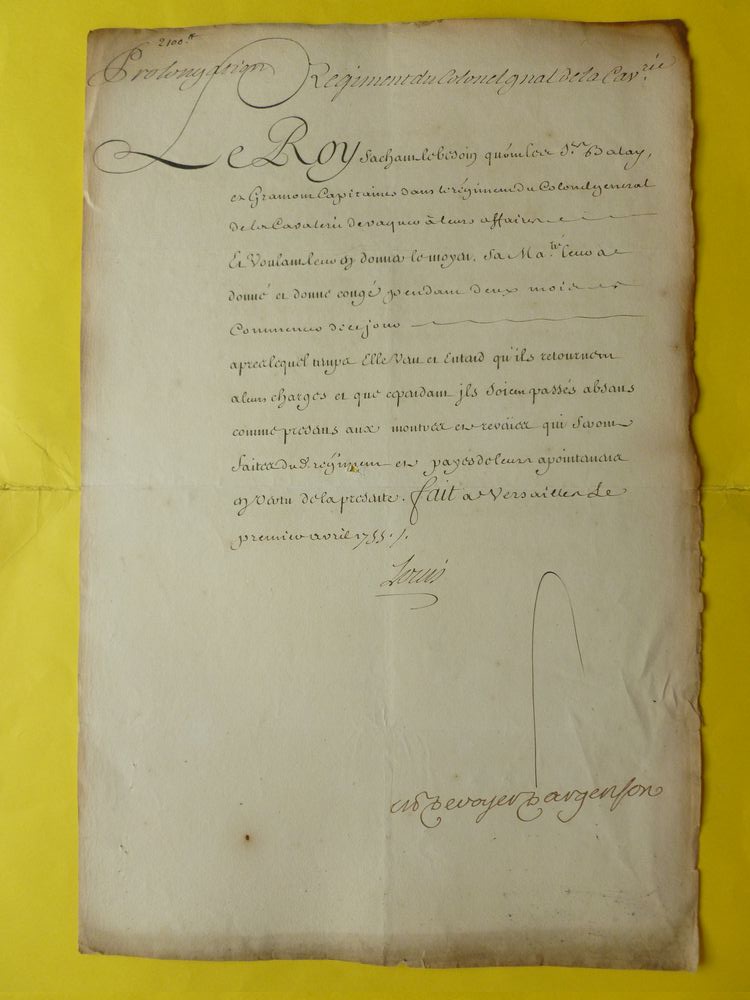 2100.#
Prolongasion Regiment du Colonel gnal de la Cav.rie
Le Roy Sachant le besoin qu'ont les Srs Balay,
et Gramont Capitaines dans le régiment du Colonel general
de la Cavalerie de vaquer à leurs affaires
Et Voulant leur en donner le moyen. Sa Ma.té leur a
donné et donne congé pendant deux mois à
Commencer de ce jour
apres lequel temps Elle Veut et Entend qu'ils retournent
a leurs charges et que cependant jls Soient passés absans
comme presans aux montres et revües qui Seront
faites du d. regiment et payés de leurs apointemens
en Vertu de la presente. fait a Versailles Le
premier avril 1755./.
Louis
M De voyer D'argenson